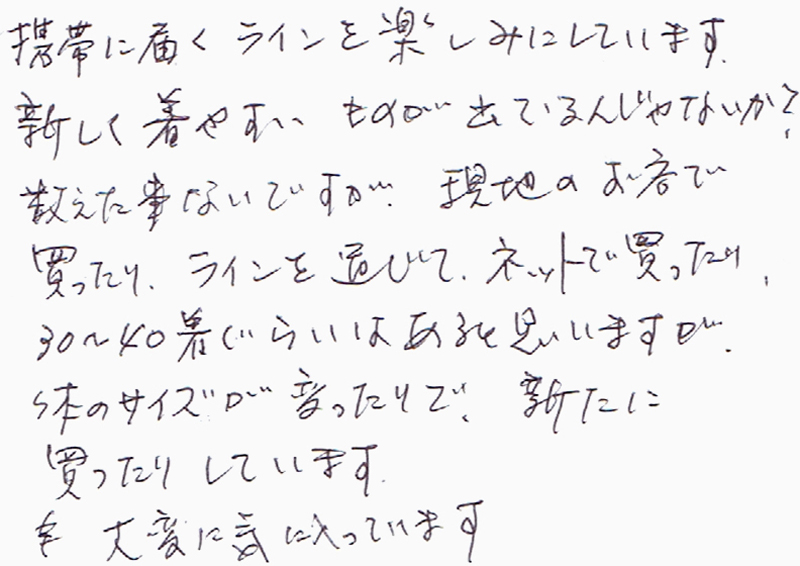 携帯に届くラインを楽しみにしています。
新しく着やすい ものが出ているんじゃないか？
数えた事ないですが、現地のお店で
買ったり、ラインを通じて、ネットで買ったり、
30〜40着ぐらいはあると思いますが、
体のサイズが変ったりで、新たに
買ったりしています。
大変に気に入っています